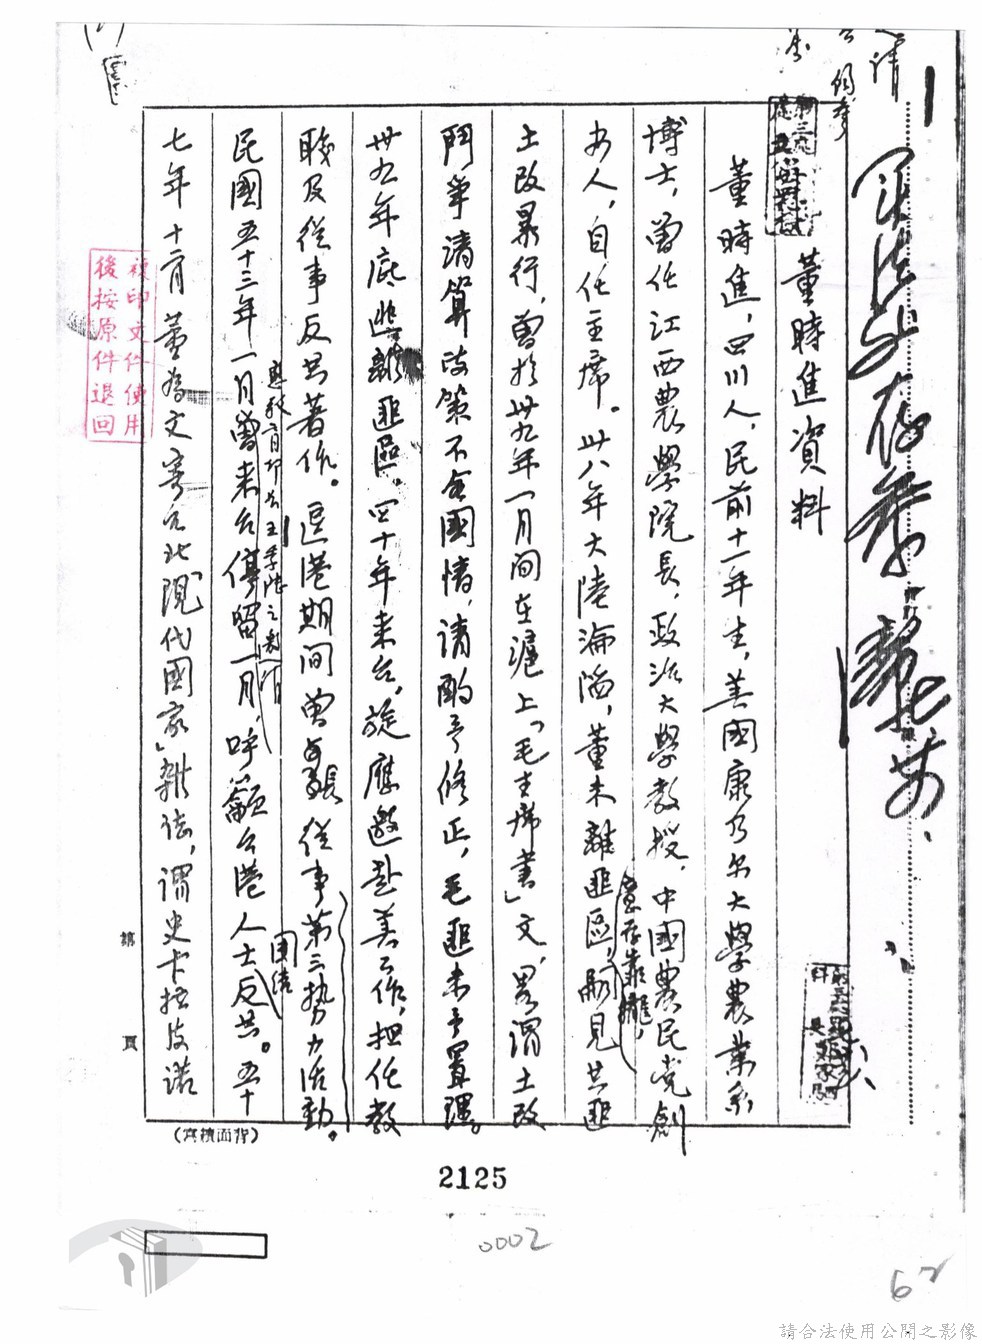 董時進資料
董時進，四川人，民前十一年生，美國康乃尔大學農業系
博士，曾任江西農學院長，政治大學教授，中國農民党創
办人，自任主席。卅八年大陸淪陷，董未離匪區，意存靠攏，嗣見共匪
土改暴行，曾於卅九年一月間在滬上「毛主席書」文，畧謂土改
鬥爭清算政策不合國情，请酌予修正，毛匪未予置理。
卅九年底逃離匪區，四十年来台，旋應邀赴美工作，担任教
職及從事反共著作。逗港期間曾與張 從事第三势力活動。
民國五十三年一月曾来台停留一月，呼籲台港人士團结反共。五十
七年十二月 董為文寄台北「現代國家」雜誌，謂史卡拉皮諾
複印文件使用
後按原件退回
第 頁
(背面續寫)
2125
0002
62
請合法使用公開之影像